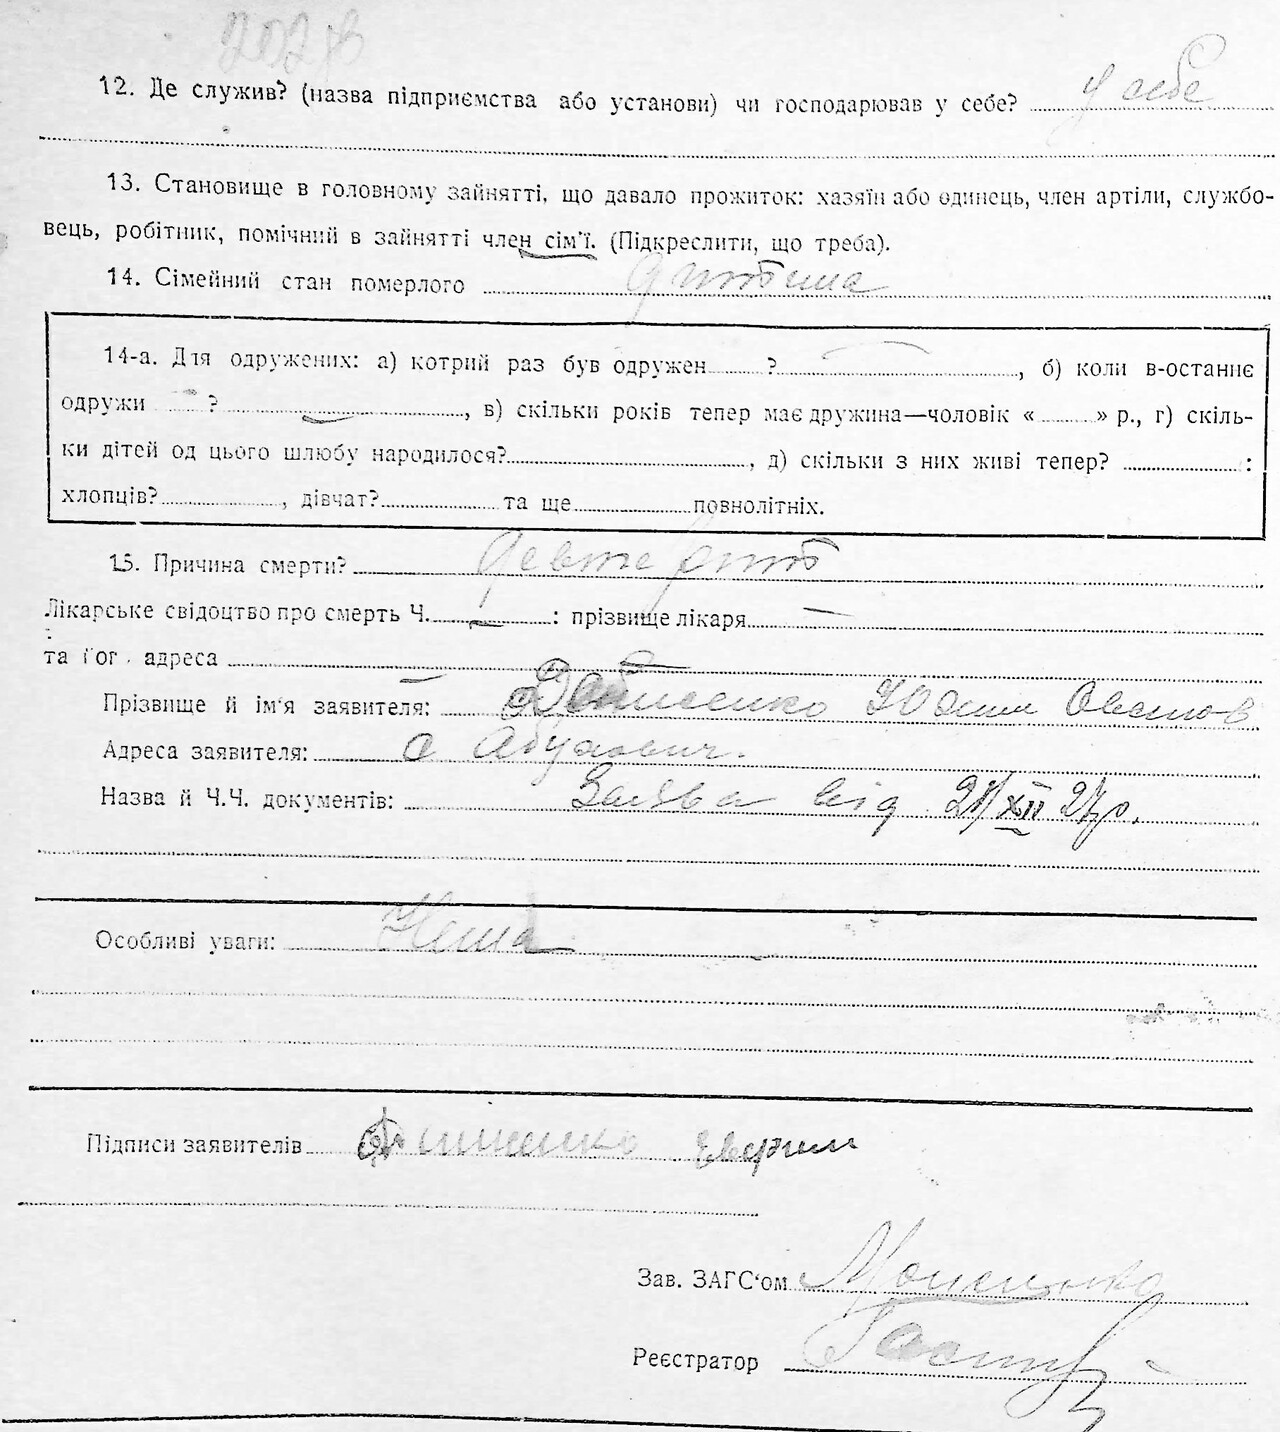 12. Де служив? (назва підприємства або установи) чи господарював у себе? у себе
13. Становище в головному зайнятті, що давало прожиток: хазяїн або одинець, член артіли, службо-
вець, робітник, помічний в зайнятті член сім'ї. (Підкреслити, що треба).
14. Сімейний стан померлого дитина
14-а. Для одружених: а) котрий раз був одружен ? , б) коли в-останнє
одружи ? , в) скільки років тепер має дружина—чоловік « » р., г) скіль-
ки дітей од цього шлюбу народилося? , д) скільки з них живі тепер? :
хлопців? , дівчат? та ще повнолітніх.
15. Причина смерти?
Лікарське свідоцтво про смерть Ч. — : прізвище лікаря —
та адреса —
Прізвище й ім'я заявителя:
Адреса заявителя: с
Назва й Ч.Ч. документів: Заява від 21/XII 27р.
Особливі уваги: Нема
Підписи заявителів
Зав. ЗАГС'ом
Реєстратор